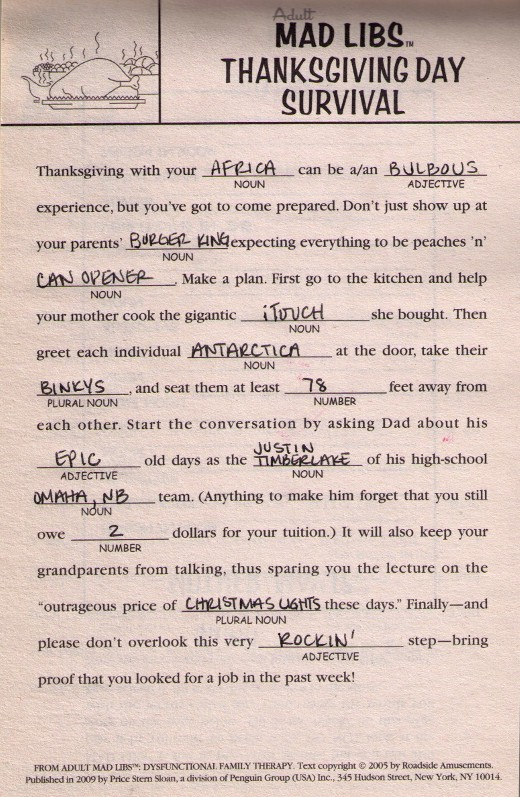 Adult
MAD LIBS™
THANKSGIVING DAY
SURVIVAL
Thanksgiving with your AFRICA can be a/an BULBOUS
NOUN ADJECTIVE
experience, but you've got to come prepared. Don't just show up at
your parents' BURGER KING expecting everything to be peaches 'n'
NOUN
CAN OPENER. Make a plan. First go to the kitchen and help
NOUN
your mother cook the gigantic iTOUCH she bought. Then
NOUN
greet each individual ANTARCTICA at the door, take their
NOUN
BINKYS, and seat them at least 78 feet away from
PLURAL NOUN NUMBER
each other. Start the conversation by asking Dad about his
EPIC old days as the JUSTIN TIMBERLAKE of his high-school
ADJECTIVE NOUN
OMAHA, NB team. (Anything to make him forget that you still
NOUN
owe 2 dollars for your tuition.) It will also keep your
NUMBER
grandparents from talking, thus sparing you the lecture on the
"outrageous price of CHRISTMAS LIGHTS these days." Finally—and
PLURAL NOUN
please don't overlook this very ROCKIN' step—bring
ADJECTIVE
proof that you looked for a job in the past week!
FROM ADULT MAD LIBS™: DYSFUNCTIONAL FAMILY THERAPY. Text copyright © 2005 by Roadside Amusements.
Published in 2009 by Price Stern Sloan, a division of Penguin Group (USA) Inc., 345 Hudson Street, New York, NY 10014.